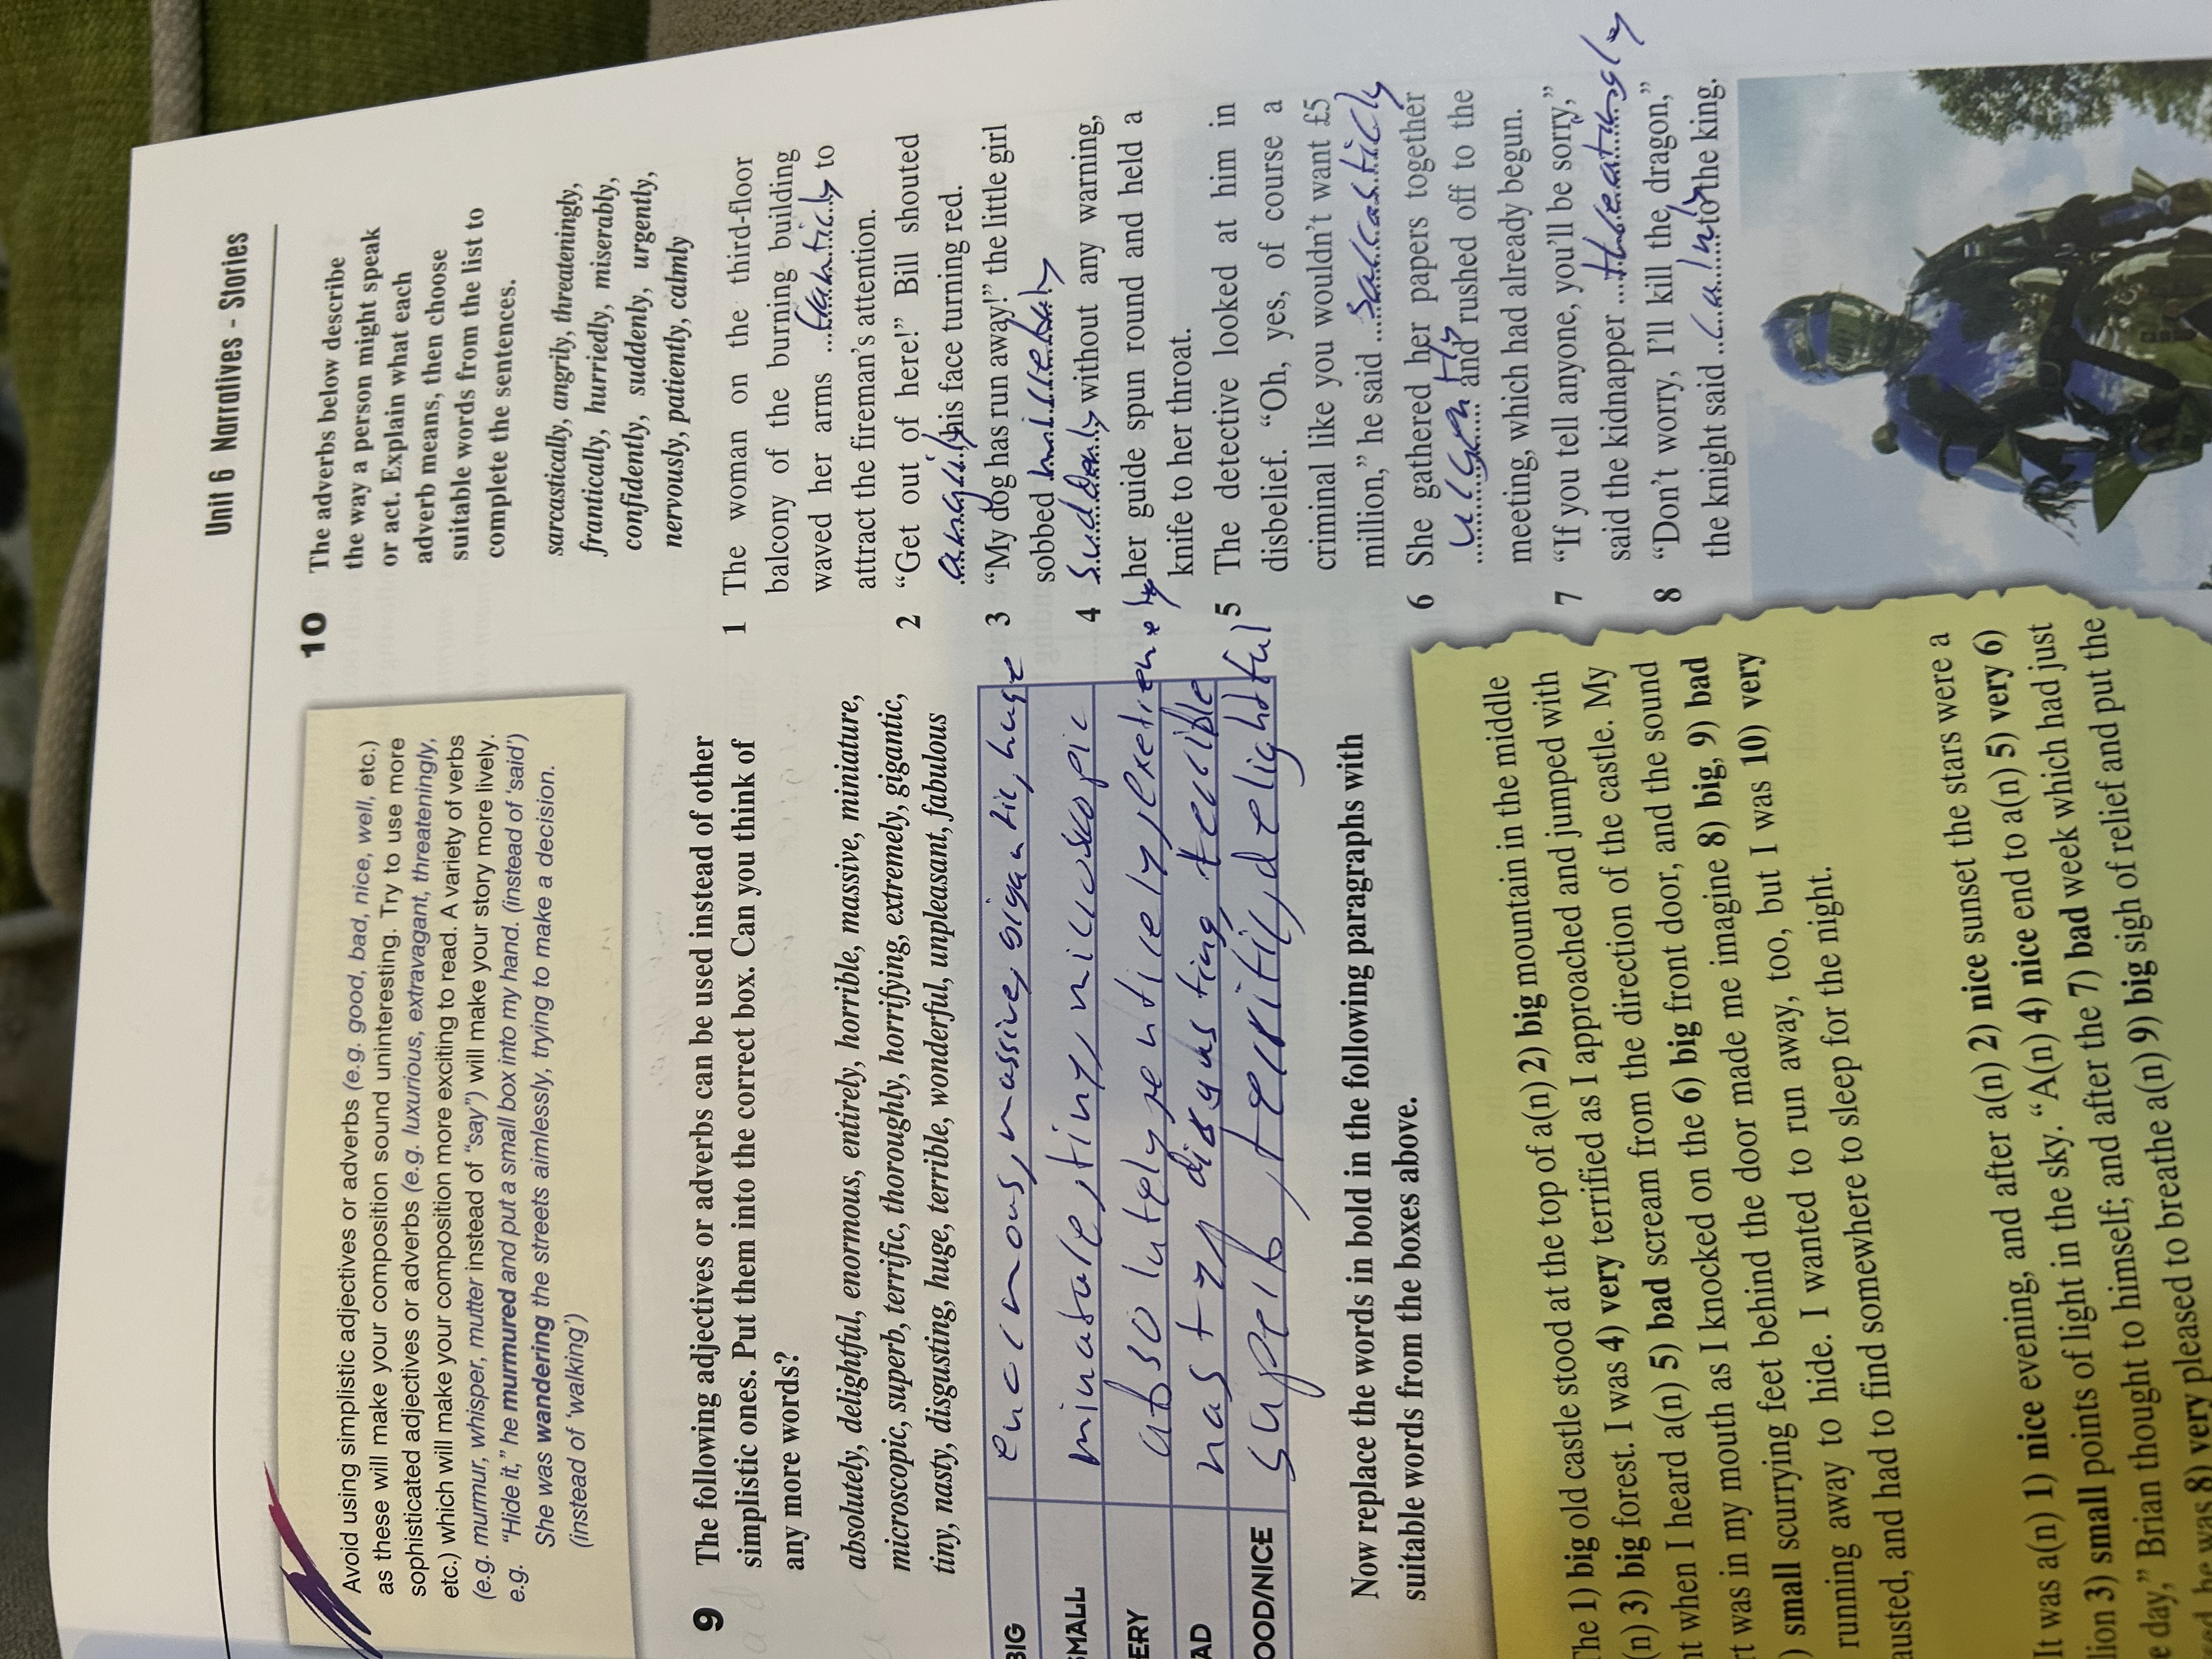 Unit 6 Narratives - Stories
Avoid using simplistic adjectives or adverbs (e.g. good, bad, nice, well, etc.)
as these will make your composition sound uninteresting. Try to use more
sophisticated adjectives or adverbs (e.g. luxurious, extravagant, threateningly,
etc.) which will make your composition more exciting to read. A variety of verbs
(e.g. murmur, whisper, mutter instead of "say") will make your story more lively.
e.g. "Hide it," he murmured and put a small box into my hand. (instead of 'said')
She was wandering the streets aimlessly, trying to make a decision.
(instead of 'walking')
9 The following adjectives or adverbs can be used instead of other
simplistic ones. Put them into the correct box. Can you think of
any more words?
absolutely, delightful, enormous, entirely, horrible, massive, miniature,
microscopic, superb, terrific, thoroughly, horrifying, extremely, gigantic,
tiny, nasty, disgusting, huge, terrible, wonderful, unpleasant, fabulous
BIG enormous, massive, gigantic, huge
MALL tiny, microscopic
ERY absolutely, entirely,
AD nasty disgusting, terrible
OOD/NICE superb, terrific, delightful
Now replace the words in bold in the following paragraphs with
suitable words from the boxes above.
The 1) big old castle stood at the top of a(n) 2) big mountain in the middle
(n) 3) big forest. I was 4) very terrified as I approached and jumped with
nt when I heard a(n) 5) bad scream from the direction of the castle. My
rt was in my mouth as I knocked on the 6) big front door, and the sound
) small scurrying feet behind the door made me imagine 8) big, 9) bad
running away to hide. I wanted to run away, too, but I was 10) very
austed, and had to find somewhere to sleep for the night.
It was a(n) 1) nice evening, and after a(n) 2) nice sunset the stars were a
lion 3) small points of light in the sky. "A(n) 4) nice end to a(n) 5) very 6)
e day," Brian thought to himself; and after the 7) bad week which had just
he was 8) very pleased to breathe a(n) 9) big sigh of relief and put the
10 The adverbs below describe
the way a person might speak
or act. Explain what each
adverb means, then choose
suitable words from the list to
complete the sentences.
sarcastically, angrily, threateningly,
frantically, hurriedly, miserably,
confidently, suddenly, urgently,
nervously, patiently, calmly
1 The woman on the third-floor
balcony of the burning building
waved her arms ... franticly to
attract the fireman's attention.
2 "Get out of here!" Bill shouted
angrily his face turning red.
3 "My dog has run away!" the little girl
sobbed
4 Suddenly without any warning,
her guide spun round and held a
knife to her throat.
5 The detective looked at him in
disbelief. "Oh, yes, of course a
criminal like you wouldn't want £5
million," he said ... sarcasticly
6 She gathered her papers together
... urgently and rushed off to the
meeting, which had already begun.
7 "If you tell anyone, you'll be sorry,"
said the kidnapper ...
8 "Don't worry, I'll kill the dragon,"
the knight said .. calmly to the king.